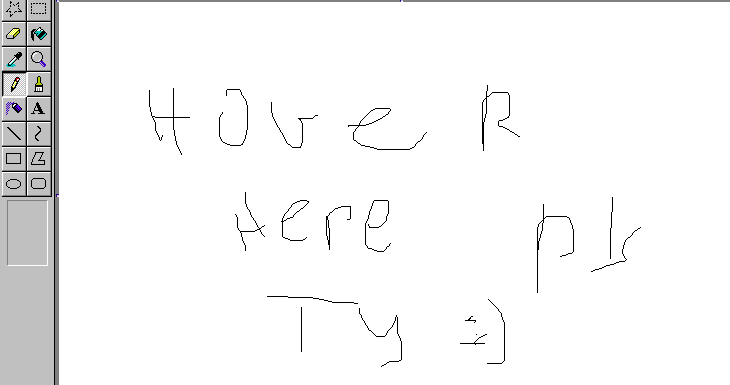 Hove R
Here pls
Ty =)